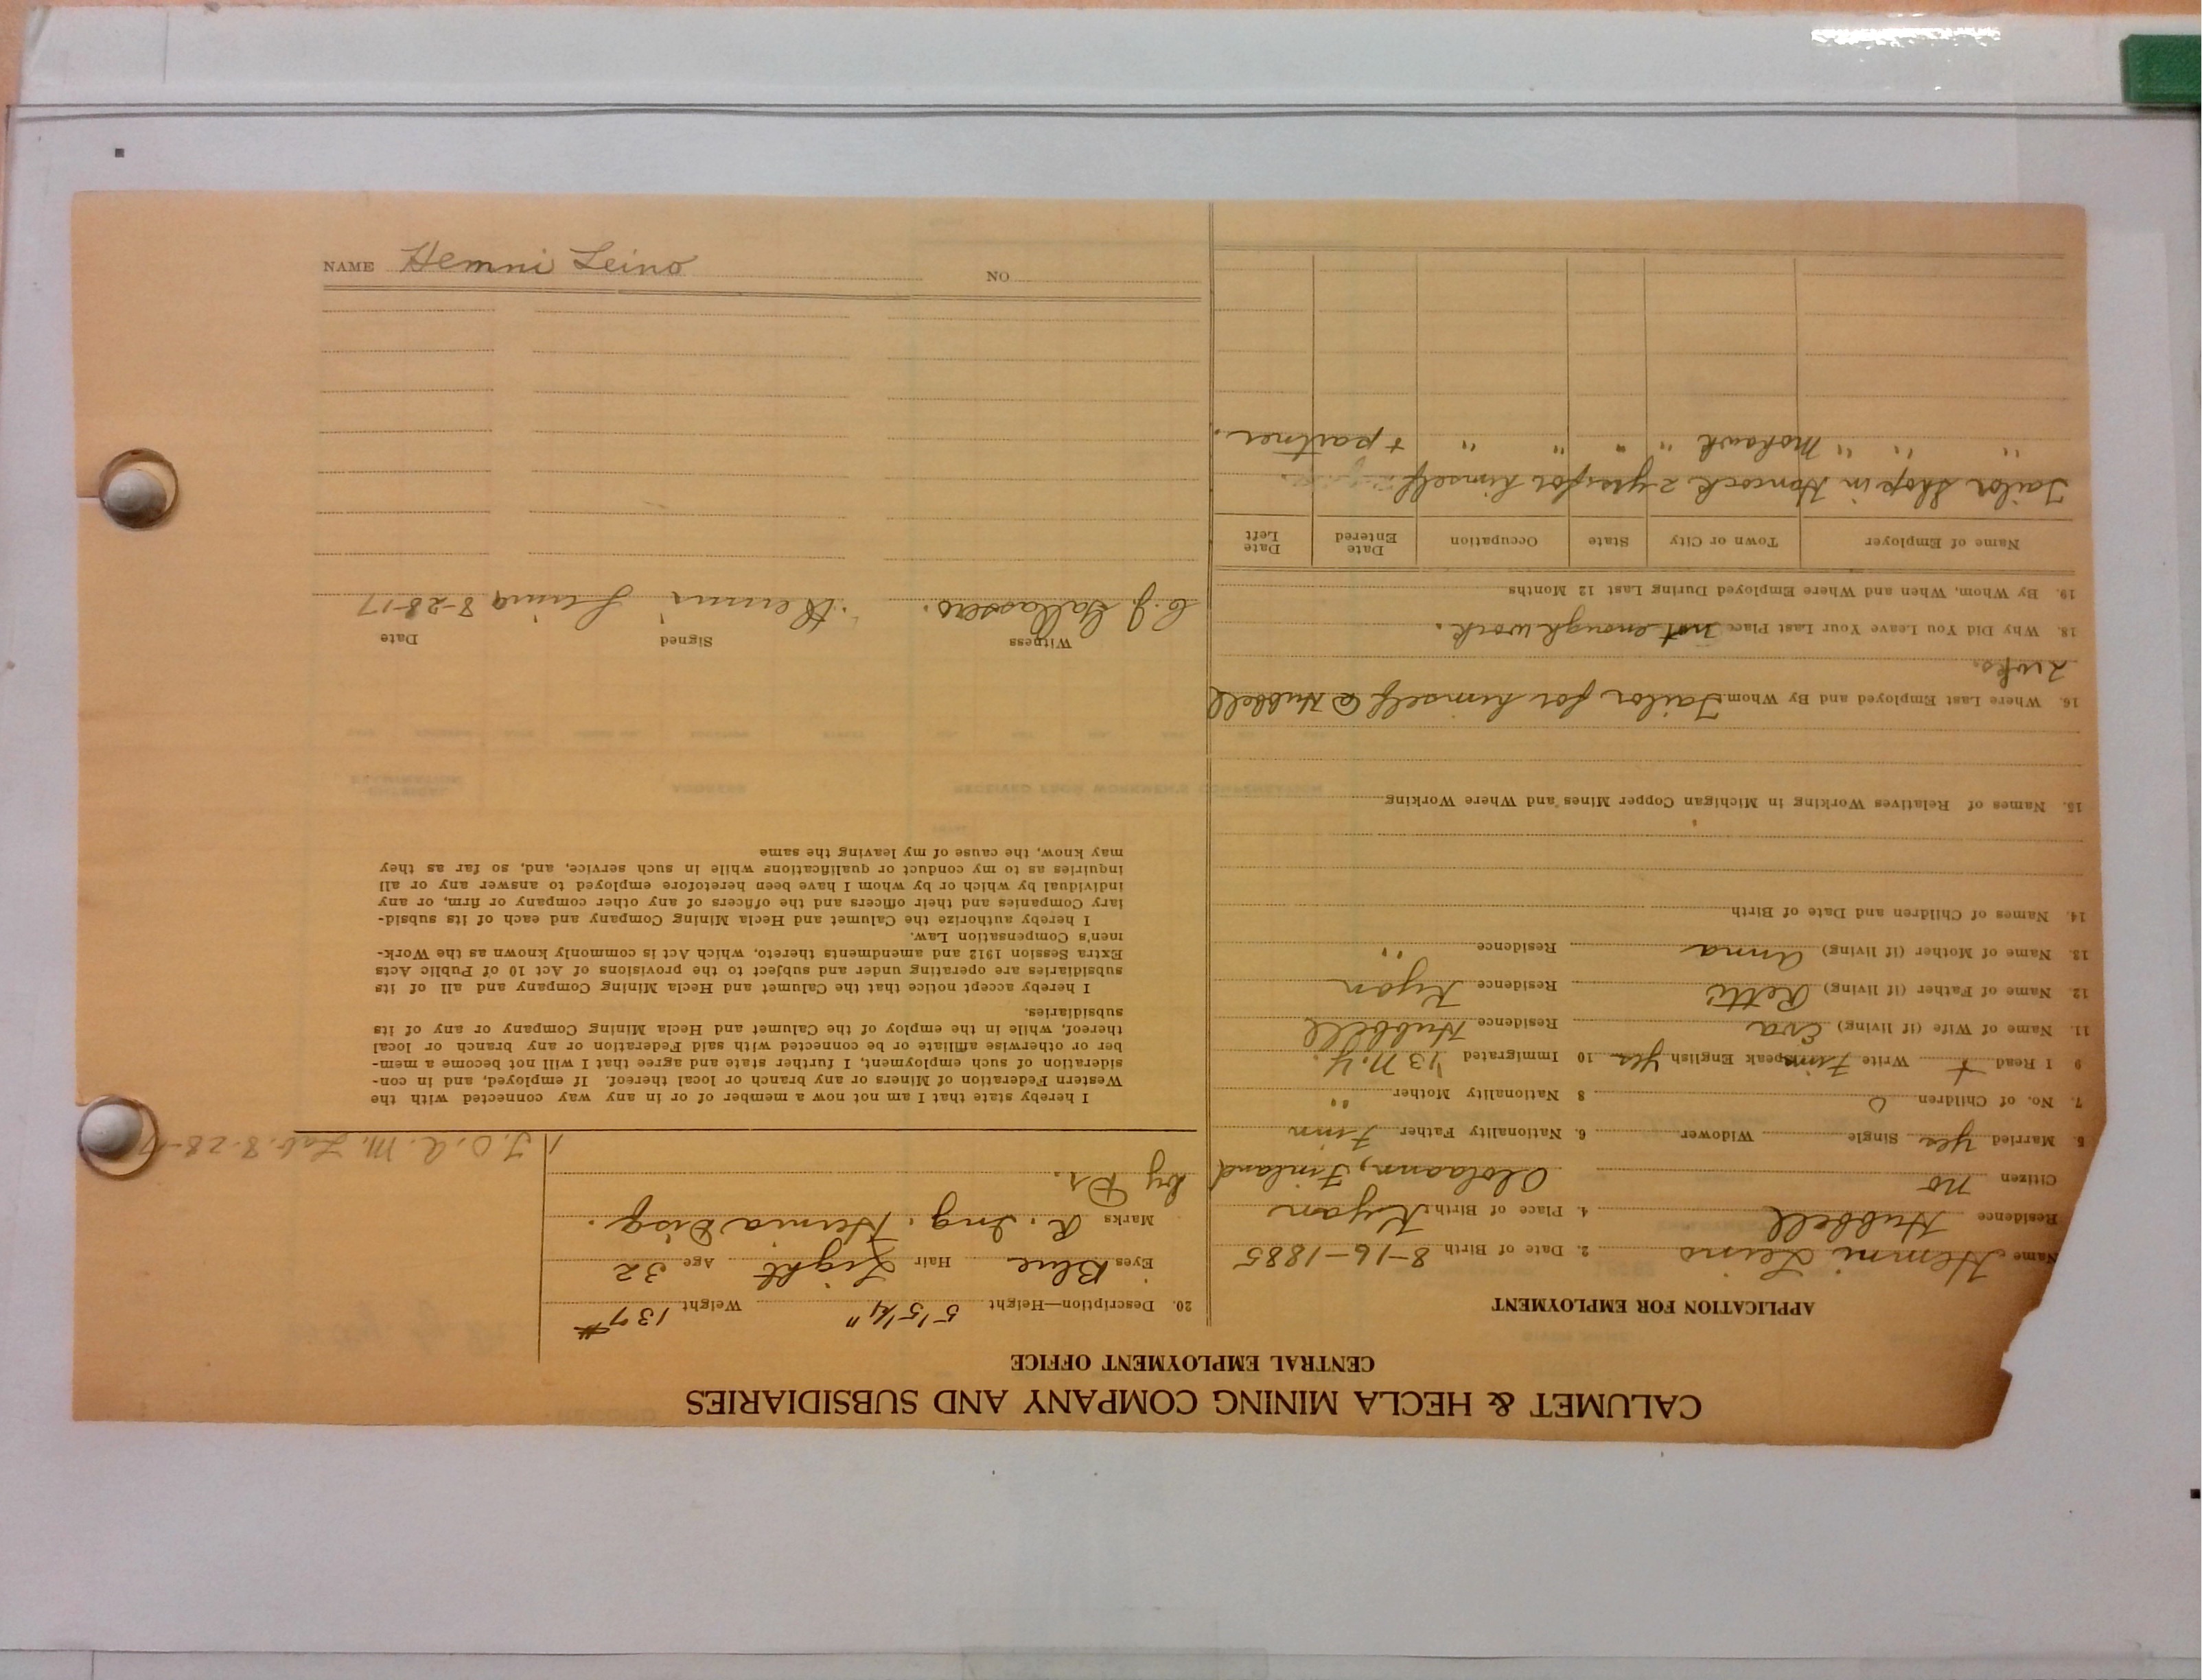 CALUMET & HECLA MINING COMPANY AND SUBSIDIARIES
CENTRAL EMPLOYMENT OFFICE
APPLICATION FOR EMPLOYMENT
Name Hemni Leino 2. Date of Birth 8-16-1885
Residence Hubbell 4. Place of Birth Kyan
Citizen no Ololaann, Finland
5. Married yes Single Widower 6. Nationality Father Finn
7. No. of Children 0 8 Nationality Mother "
9 I Read + Write Finn Speak English yes 10 Immigrated '13 N.Y
11. Name of Wife (if living) Eva Residence Hubbell
12. Name of Father (if living) Residence Kyan
13. Name of Mother (if living) Anna Residence "
14. Names of Children and Date of Birth
15. Names of Relatives Working in Michigan Copper Mines and Where Working
16. Where Last Employed and By Whom Tailor for himself @ Hubbell
2 wks.
18. Why Did You Leave Your Last Place not enough work.
19. By Whom, When and Where Employed During Last 12 Months
Name of Employer Town or City State Occupation Date Entered Date Left
Tailor Shop in Hancock 2 yrs for himself
" " " Mohawk " " " " + partner.
20. Description—Height 5'5 1/4" Weight 137#
Eyes Blue Hair Light Age 32
Marks R. Ing. Hernia Disq.
by Dr.
8-28-17
I hereby state that I am not now a member of or in any way connected with the
Western Federation of Miners or any branch or local thereof. If employed, and in con-
sideration of such employment, I further state and agree that I will not become a mem-
ber or otherwise affiliate or be connected with said Federation or any branch or local
thereof, while in the employ of the Calumet and Hecla Mining Company or any of its
subsidiaries.
I hereby accept notice that the Calumet and Hecla Mining Company and all of its
subsidiaries are operating under and subject to the provisions of Act 10 of Public Acts
Extra Session 1912 and amendments thereto, which Act is commonly known as the Work-
men's Compensation Law.
I hereby authorize the Calumet and Hecla Mining Company and each of its subsid-
iary Companies and their officers and the officers of any other company or firm, or any
individual by which or by whom I have been heretofore employed to answer any or all
inquiries as to my conduct or qualifications while in such service, and, so far as they
may know, the cause of my leaving the same
Witness Signed Date
C.J. Hemni Leino 8-28-17
NAME Hemni Leino NO